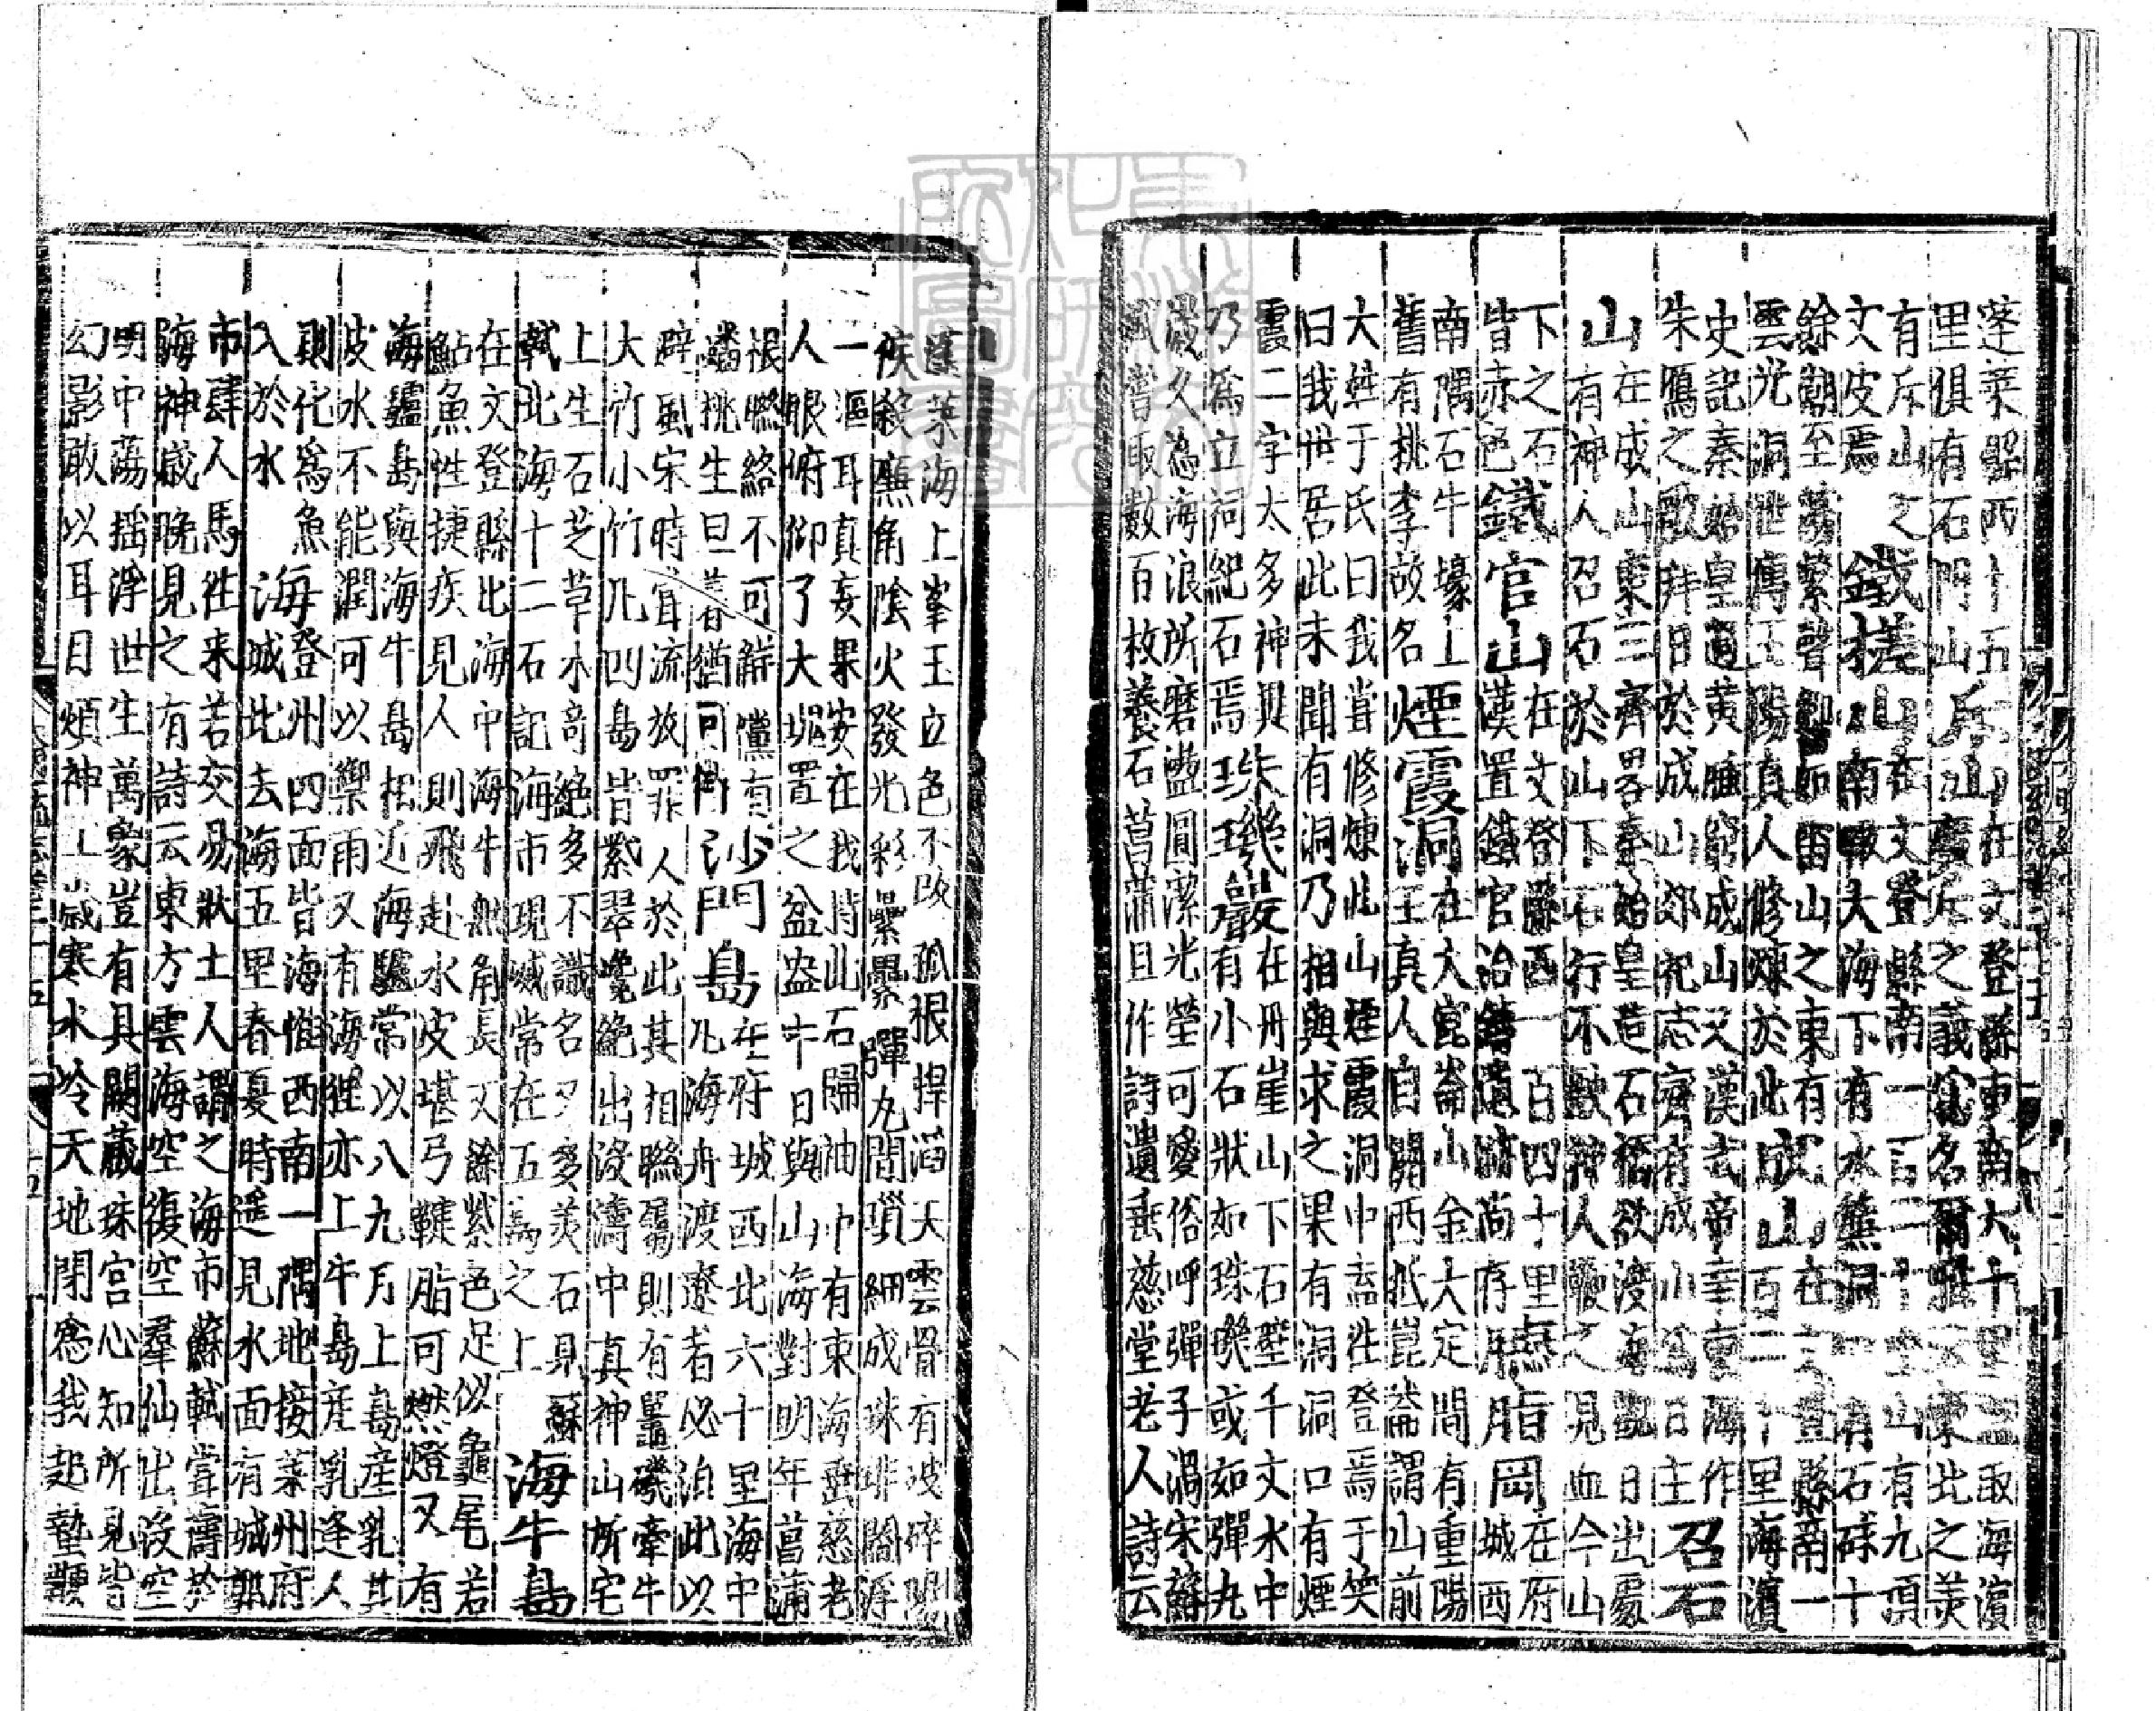 蓬萊縣西十五 山在文登縣東南大十里 取海濱
里俱有石門山 斥山 斥之義 名爾雅 東北之美
有斥山之 鐵槎山 在文登縣南一百二十里 山有九頂
文皮焉 南瞰大海下有水簾洞 有石碌十
餘潮至 繫聲 如雷山之東有 在文登縣南一
雲光洞世傳王陽真人修煉於此 成山 百二十里海濱
史記秦始皇過黃腄窮成山又漢武帝幸東海作
朱鴈之歌拜日於成山郊祀志齊有成山 日主 召石
山 在成山東三齊畧秦始皇造石橋欲渡海觀日出處
有神人召石於山下石行不 神人鞭之見血今山
下之石 在文登縣西一百四十里 在府
皆赤色 鐵官山 漢置鐵官冶鑄遺 尚存 岡 城西
南隅石牛壕上 煙霞洞 在大崑崙山金大定間有重陽
舊有桃李故名 王真人自關西抵崑崙謂山前
大姓于氏曰我嘗修煉此山煙霞洞中盍往登焉于笑
曰我世居此未聞有洞乃相與求之果有洞洞口有煙
霞二字太多神異 珠璣巖 在丹崖山下石壁千丈水中
乃為立祠紀石焉 有小石狀如珠璣或如彈丸
歲久為海浪所磨盪圓潔光瑩可愛俗呼彈子渦宋蘇
軾嘗取數百枚養石菖蒲且作詩遺垂慈堂老人詩云
蓬萊海上峯玉立色不改孤根捍滔天雲骨有破碎陽
侯殺廉角陰火發光彩纍纍彈丸間瑣細成珠琲閻浮
一漚耳真妄果安在我持此石歸袖中有東海垂慈老
人眼俯仰了大塊置之盆盎中日與山海對明年菖蒲
根聯絡不可解儻有 沙門島 在府城西北六十里海中
蟠桃生旦暮猶可 凡海舟渡遼者必泊此以
辟風宋時嘗流放罪人於此其相聯屬則有鼉磯牽牛
大竹小竹凡四島皆紫翠巉絕出沒濤中真神山所宅
上生石芝草木奇絕多不識名夕多美石見蘇 海牛島
軾北海十二石記海市現滅常在五島之上
在文登縣北海中海牛無角長丈餘紫色足似龜尾若
鮎魚性捷疾見人則飛赴水皮堪弓鞬脂可燃燈又有
海驢島與海牛島相近海驢常以八九月上島產乳其
皮水不能潤可以禦雨又有海狸亦上牛島產乳逢人
則化為魚 海 登州四面皆海惟西南一隅地接萊州府
入於水 城北去海五里春夏時遥見水面有城郭
市肆人馬往来若交易狀土人謂之海市蘇軾嘗禱於
海神歲晚見之有詩云東方雲海空復空羣仙出沒空
明中蕩揺浮世生萬象豈有貝闕藏珠宮心知所見皆
幻影敢以耳目煩神工歲寒水冷天地閉為我起蟄鞭